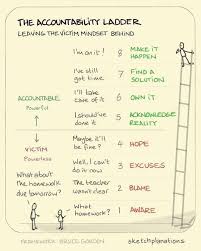 THE ACCOUNTABILITY LADDER
LEAVING THE VICTIM MINDSET BEHIND
I'm on it! 8 MAKE IT HAPPEN
I've still got time. 7 FIND A SOLUTION
I'll take care of it 6 OWN IT
ACCOUNTABLE
Powerful
I should've done it 5 ACKNOWLEDGE REALITY
VICTIM
Powerless
Maybe it'll be fine? 4 HOPE
Well, I can't do it now 3 EXCUSES
What about the homework due tomorrow?
The teacher wasn't clear 2 BLAME
What homework? 1 AWARE
FRAMEWORK: BRUCE GORDON
sketchplanations